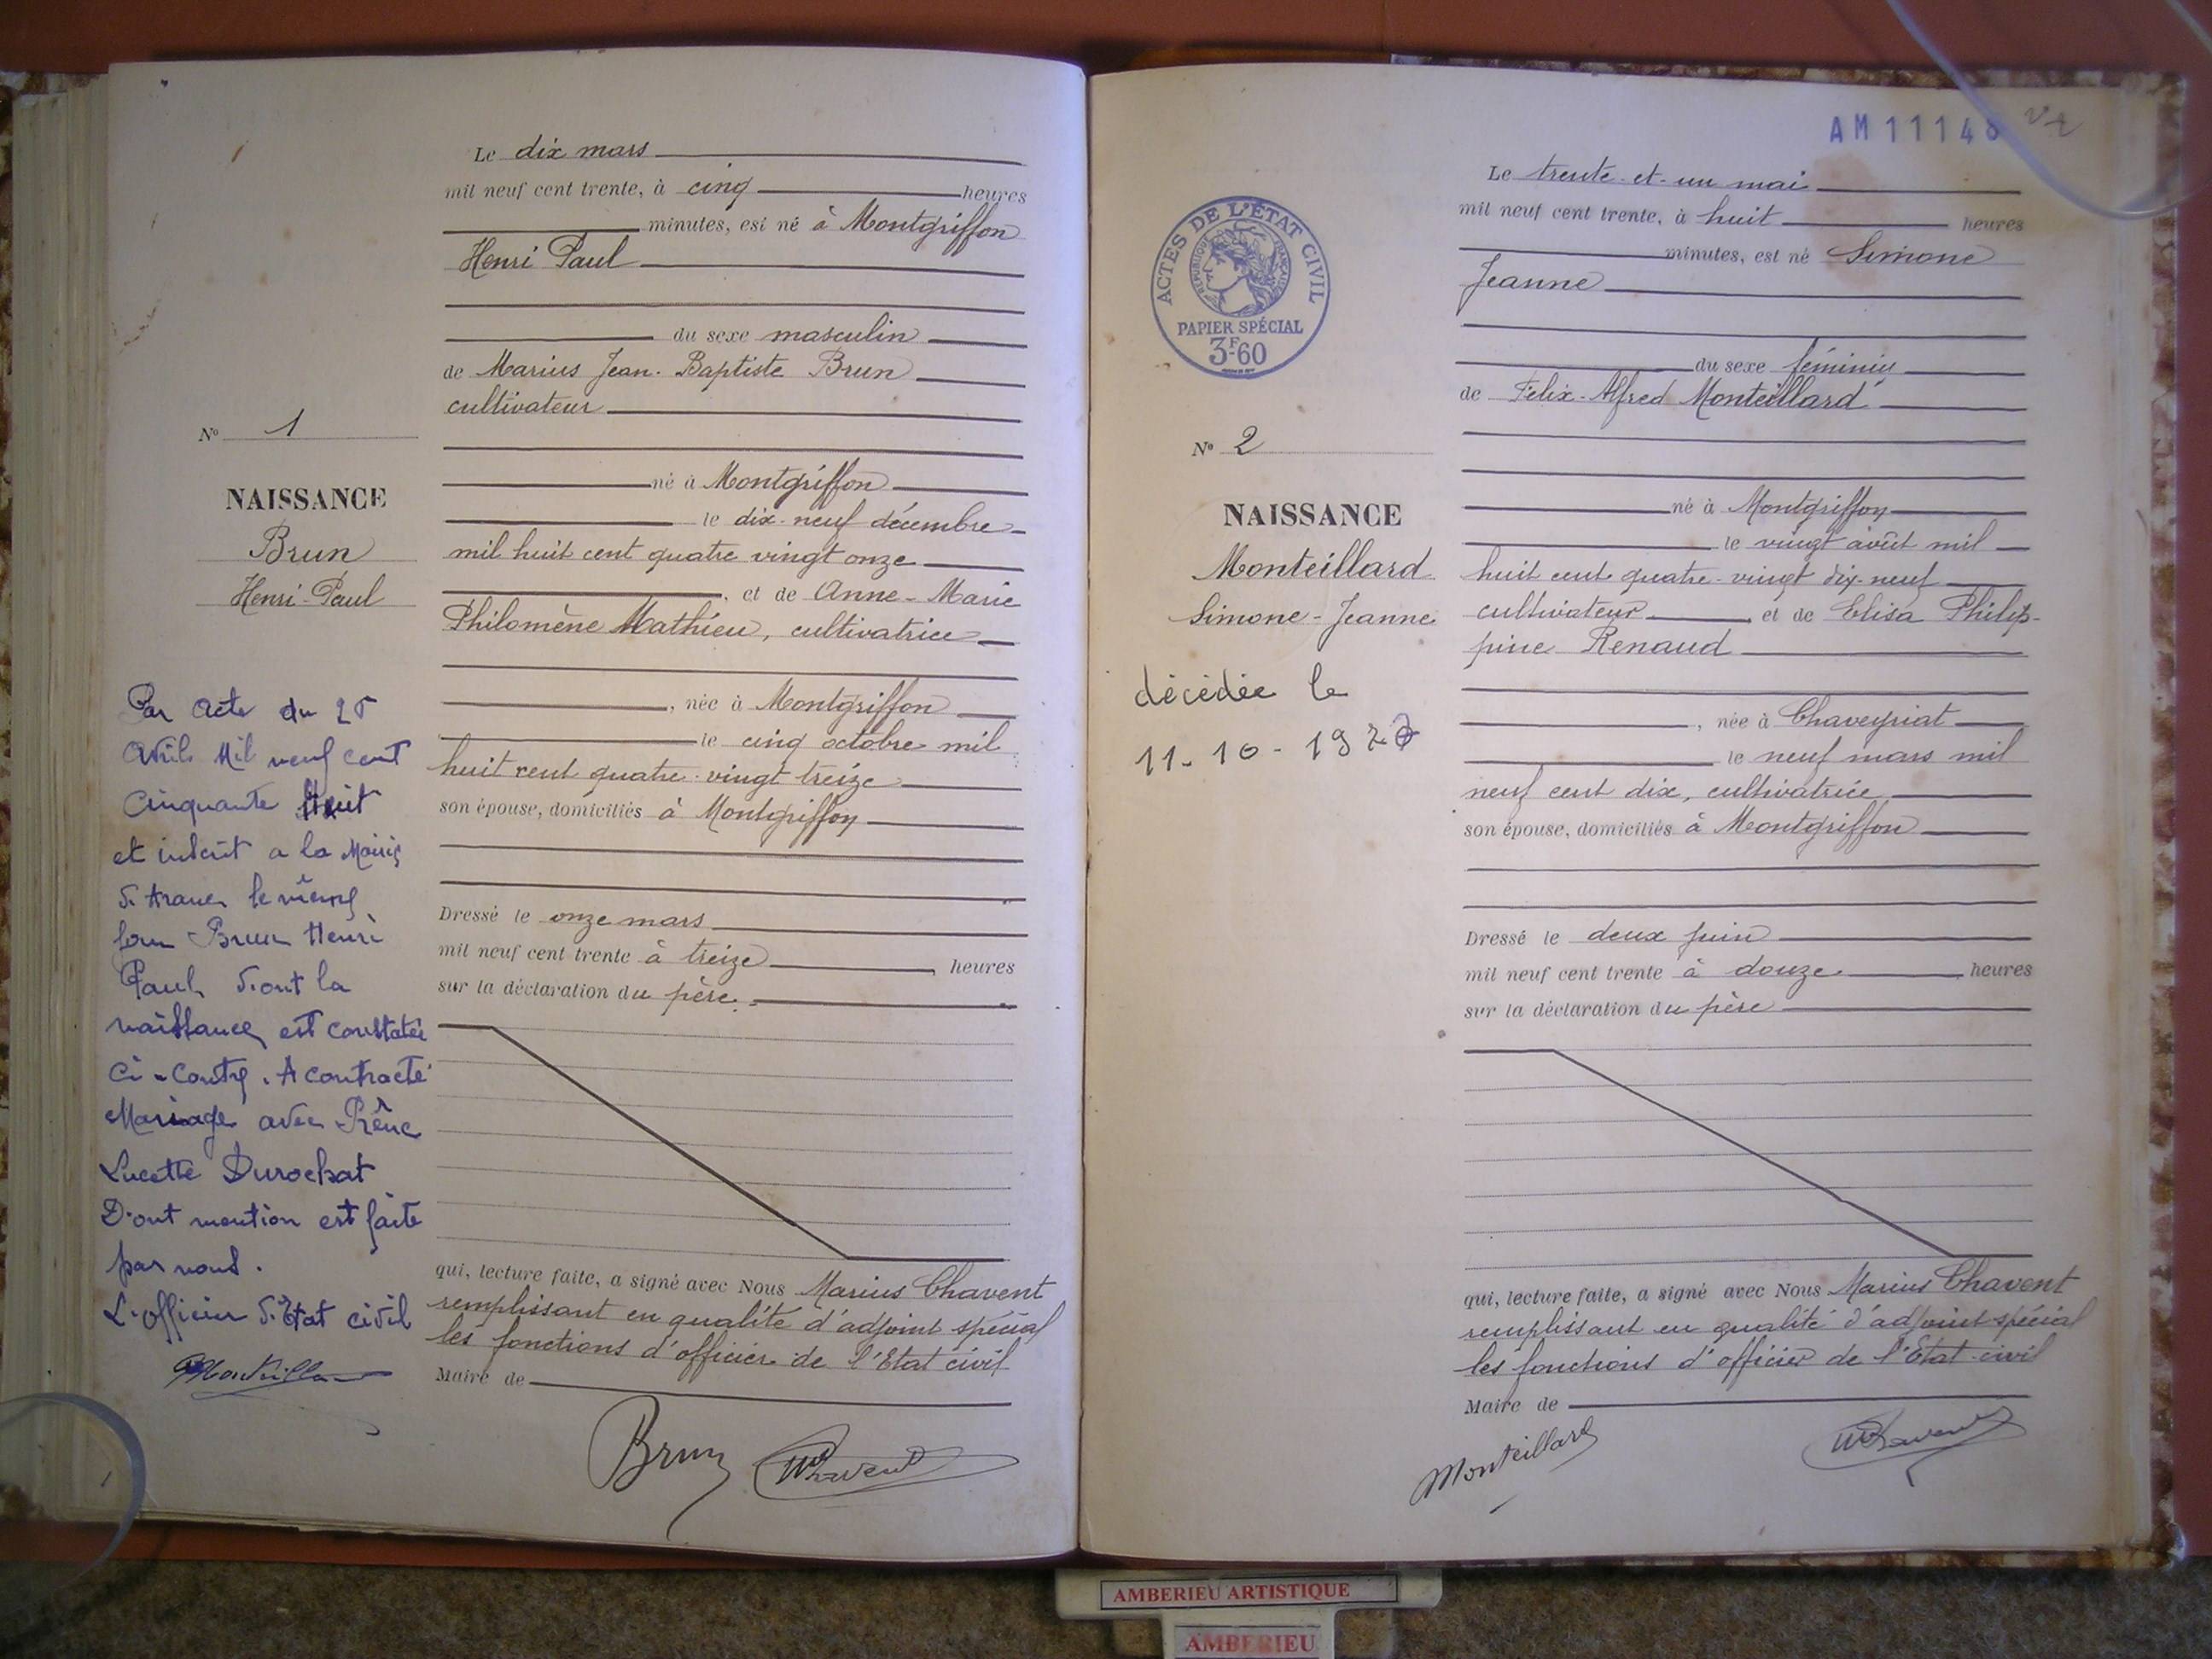 Le dix mars
mil neuf cent trente, à cinq heures
minutes, est né à Montgriffon
Henri Paul
du sexe masculin
de Marius Jean-Baptiste Brun
cultivateur
né à Montgriffon
le dix-neuf décembre
mil huit cent quatre vingt onze
, et de Anne-Marie
Philomène Mathieu, cultivatrice
, née à Montgriffon
le cinq octobre mil
huit cent quatre-vingt treize
son épouse, domiciliés à Montgriffon
Dressé le onze mars
mil neuf cent trente à treize, heures
sur la déclaration du père.
qui, lecture faite, a signé avec Nous Marius Chavent
remplissant en qualité d'adjoint spécial
les fonctions d'officier de l'Etat civil
Maire de
Brun
MChavent
N° 1
NAISSANCE
Brun
Henri-Paul
Par acte du
Avril Mil neuf cent
Cinquante Huit
et inscrit a la Mairie
le même
Brun Henri
Paul, dont la
naissance est constatée
ci-contre. A contracté
Mariage avec Rêne
Lucette Durochat
D'ont mention est faite
par nous.
L'officier d'Etat civil
AM 11148
ACTES DE L'ÉTAT CIVIL
RÉPUBLIQUE FRANÇAISE
PAPIER SPÉCIAL
3F-60
N° 2
NAISSANCE
Monteillard
Simone-Jeanne
décédée le
11-10-
Le trente-et-un mai
mil neuf cent trente, à huit heures
minutes, est né Simone
Jeanne
du sexe féminin
de Félix-Alfred Monteillard
né à Montgriffon
le vingt août mil
huit cent quatre-vingt dix-neuf
cultivateur, et de Elisa Philip-
pine Renaud
, née à Chaveyriat
le neuf mars mil
neuf cent dix, cultivatrice
son épouse, domiciliés à Montgriffon
Dressé le deux juin
mil neuf cent trente à douze, heures
sur la déclaration du père
qui, lecture faite, a signé avec Nous Marius Chavent
remplissant en qualité d'adjoint spécial
les fonctions d'officier de l'Etat civil
Maire de
Monteillard
MChavent
AMBERIEU ARTISTIQUE
AMBERIEU